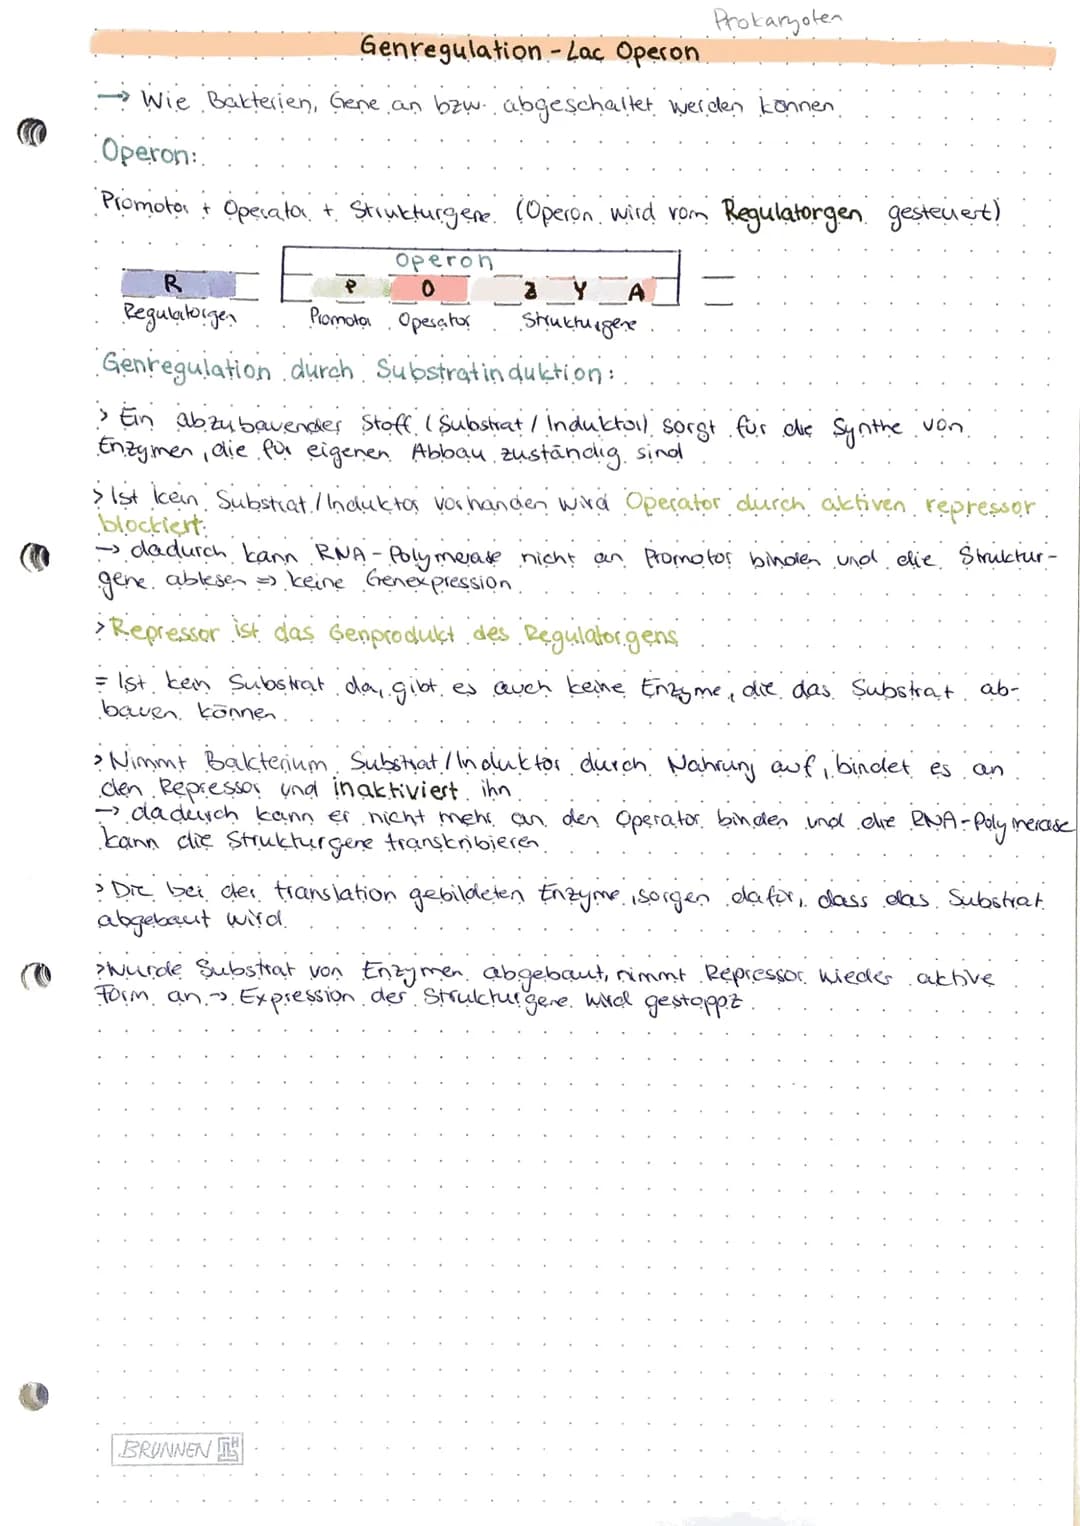 Prokaryoten
Genregulation - Lac Operon
→ Wie Bakterien, Gene an bzw. abgeschaltet werden können
Operon:
Promotor + Operator + Strukturgene (Operon wird vom Regulatorgen gesteuert)
Operon
R P O Z Y A
Regulatorgen Promotor Operator Strukturgene
Genregulation durch Substratinduktion:
> Ein abzubauender Stoff (Substrat / Induktor) sorgt für die Synthe von
Enzymen, die für eigenen Abbau zuständig sind
> Ist kein Substrat / Induktor vorhanden wird Operator durch aktiven repressor
blockiert.
→ dadurch kann RNA-Polymerase nicht an Promotor binden und die Struktur-
gene ablesen => keine Genexpression
> Repressor ist das Genprodukt des Regulatorgens
= Ist kein Substrat da, gibt es auch keine Enzyme, die das Substrat ab-
bauen können
> Nimmt Bakterium Substrat / Induktor durch Nahrung auf, bindet es an
den Repressor und inaktiviert ihn
→ dadurch kann er nicht mehr an den Operator binden und die RNA-Polymerase
kann die Strukturgene transkribieren
> Die bei der translation gebildeten Enzyme, sorgen dafür, dass das Substrat
abgebaut wird
> Wurde Substrat von Enzymen abgebaut, nimmt Repressor wieder aktive
Form an → Expression der Strukturgene wird gestoppt
BRUNNEN